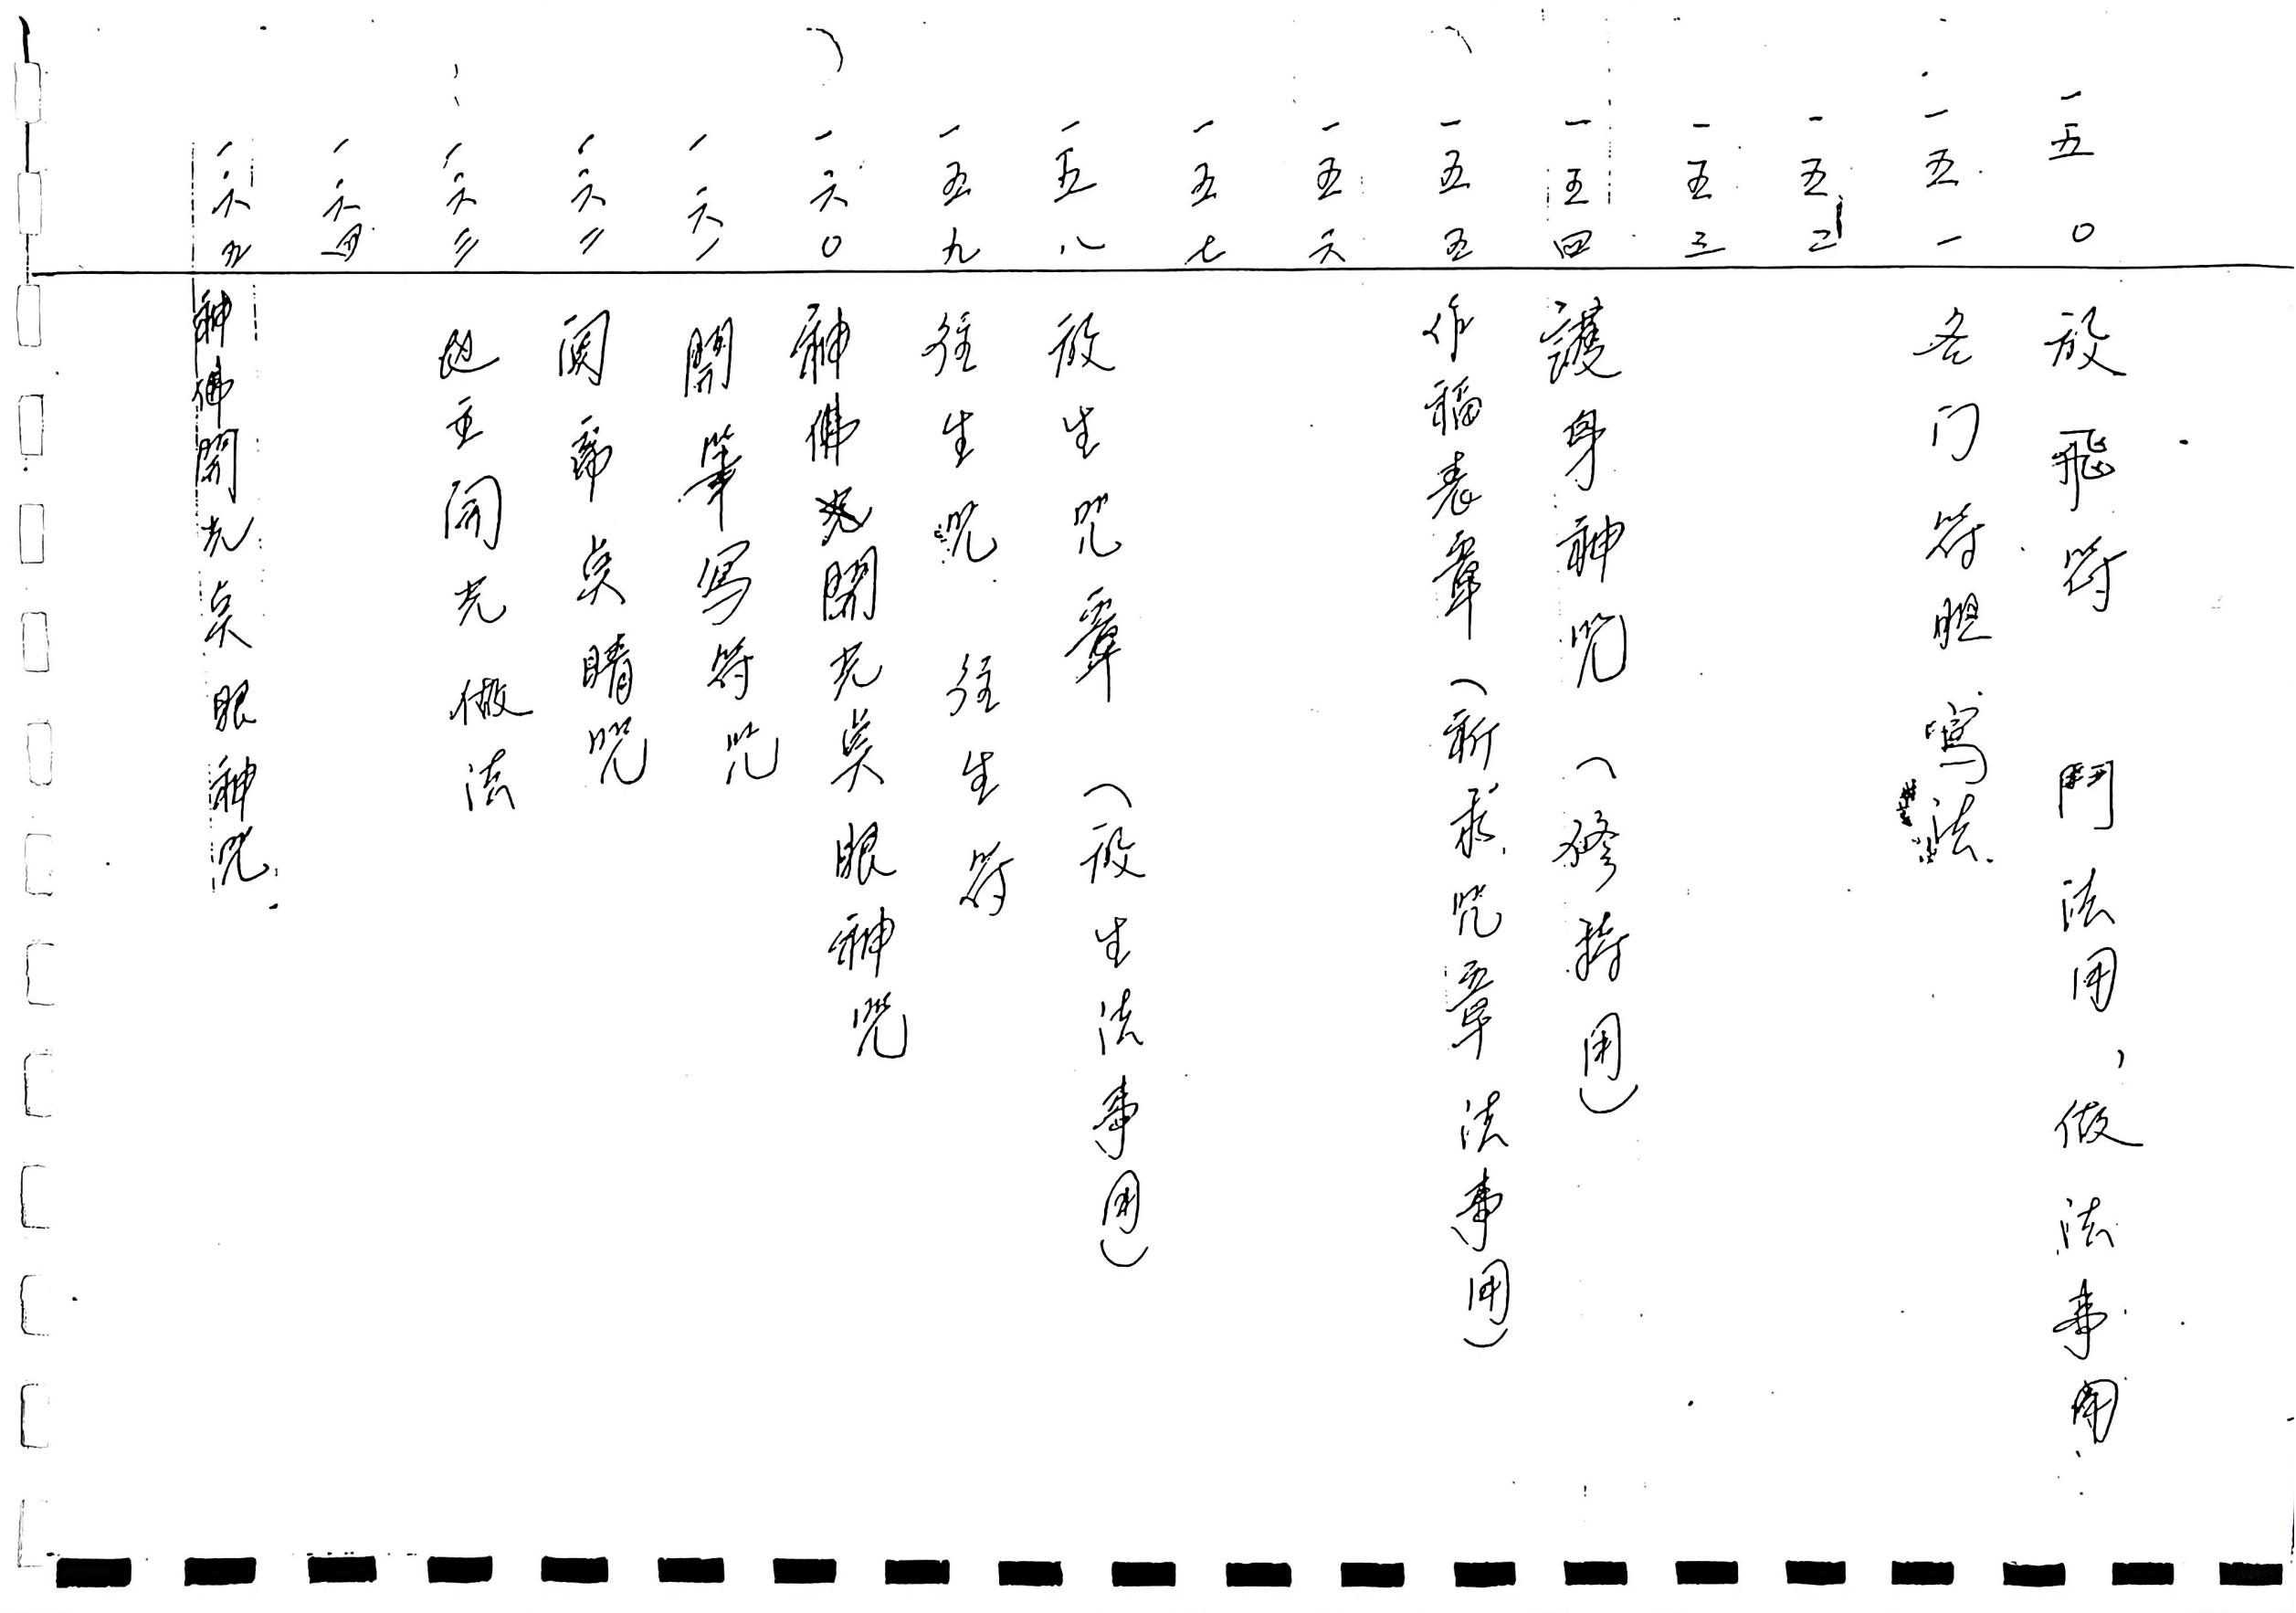 一五〇 放飛符 鬥法用，做法事用
一五一 各门符胆 寫法
一五二
一五三
一五四 護身神咒 （修持用）
一五五 作福表章（祈求咒章法事用）
一五六
一五七
一五八 放生咒章 （放生法事用）
一五九 往生咒 往生符
一六〇 神佛開光奌眼神咒
一六一 開筆写符咒
一六二 関帝奌睛咒
一六三 地主開光做法
一六四
一六五 神佛開光奌眼神咒